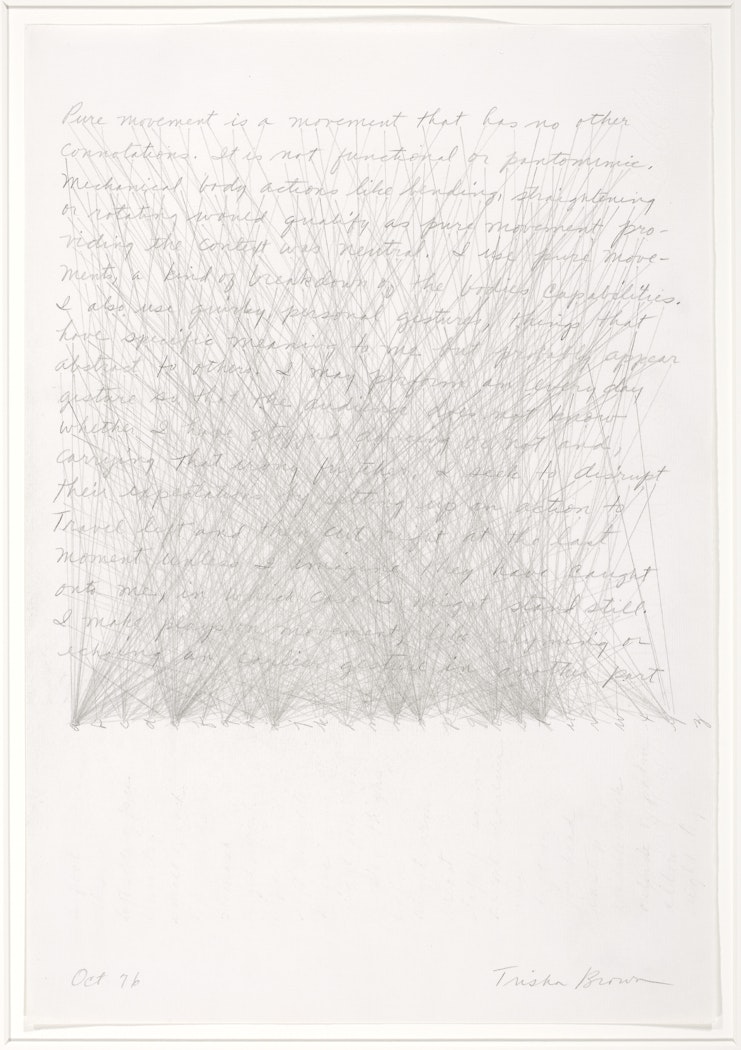 Pure movement is a movement that has no other
connotations. It is not functional or pantomimic.
Mechanical body actions like bending, straightening
or rotating would qualify as pure movement pro-
viding the context was neutral. I use pure move-
ments, a kind of breakdown of the bodies capabilities.
I also use quirky, personal gestures, things that
have specific meaning to me but probably appear
abstract to others. I may perform an everyday
gesture so that the audience does not know
whether I have stopped dancing or not and,
carrying that irony further, I seek to disrupt
their expectations by setting up an action to
Travel left and then cut right at the last
moment unless I imagine they have caught
onto me, in which case I might stand still.
I make plays on movement, like rhyming or
echoing an earlier gesture in another part
Oct 76
Trisha Brown